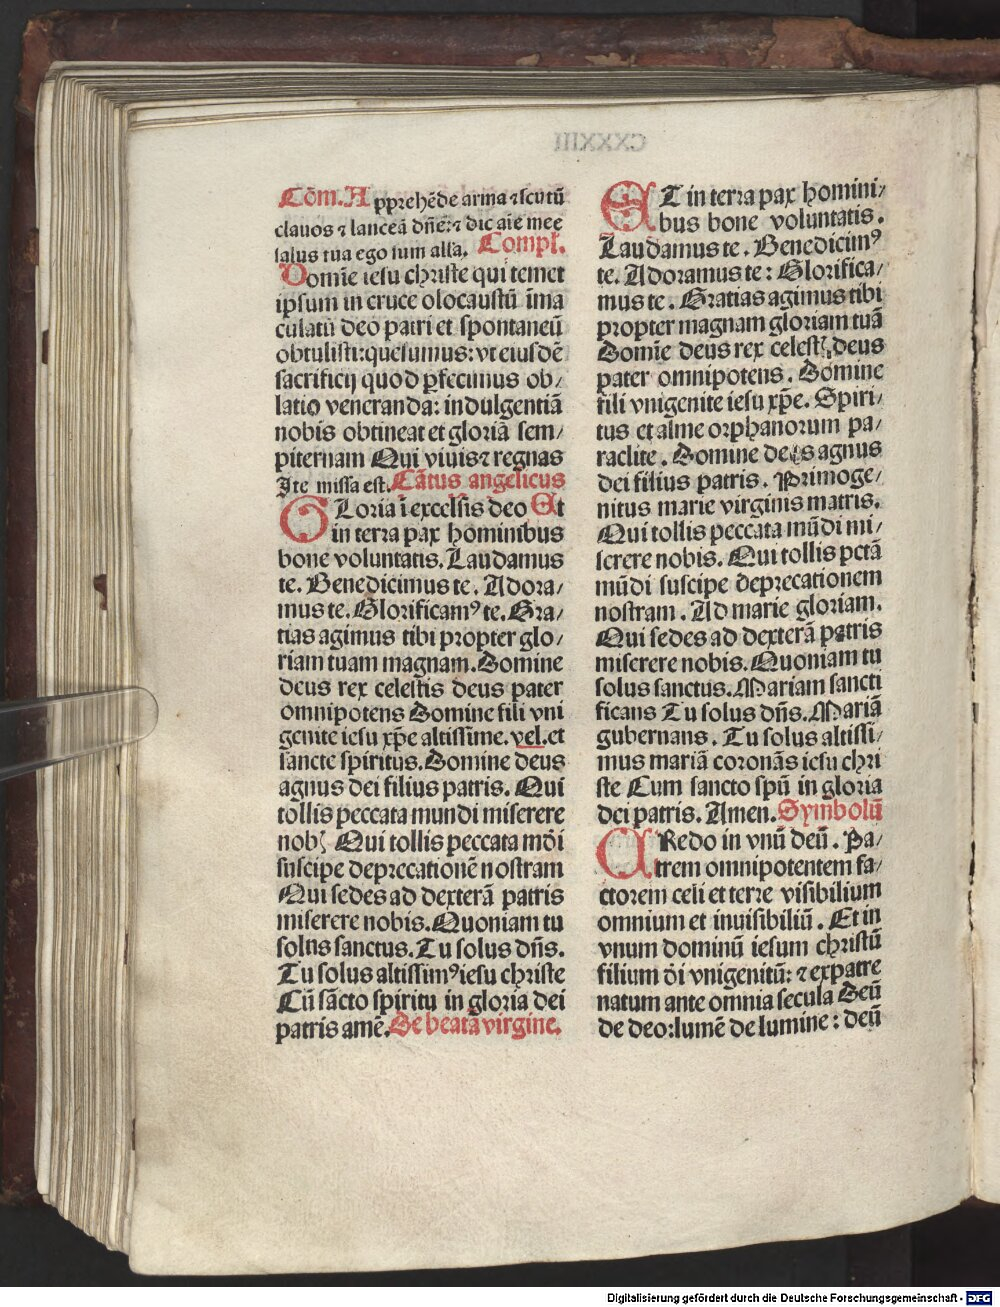 Cōm. Apprehēde arma ⁊ scutū
clauos ⁊ lanceā dn̄e: ⁊ dic aīe mee
salus tua ego sum alla. Compl̄.
Domīe iesu christe qui temet
ipsum in cruce olocaustū īma
culatū deo patri et spontaneū
obtulisti: quesumus: vt eiusdē
sacrificij quod ꝑfecimus ob/
latio veneranda: indulgentiā
nobis obtineat et gloriā sem/
piternam Qui viuis ⁊ regnas
Ite missa est. Cātus angelicus
GLoria ī excelsis deo Et
in terra pax hominibus
bone voluntatis. Laudamus
te. Benedicimus te. Adora/
mus te. Glorificamꝰ te. Gra/
tias agimus tibi propter glo/
riam tuam magnam. Domine
deus rex celestis deus pater
omnipotens Domine fili vni
genite iesu xp̄e altissime. vel. et
sancte spiritus. Domine deus
agnus dei filius patris. Qui
tollis peccata mundi miserere
nobꝭ Qui tollis peccata mōi
suscipe deprecationē nostram
Qui sedes ad dexterā patris
miserere nobis. Quoniam tu
solus sanctus. Tu solus dn̄s.
Tu solus altissimꝰ iesu christe
Cū sācto spiritu in gloria dei
patris amē. De beata virgine.
ET in terra pax homini/
bus bone voluntatis.
Laudamus te. Benedicimꝰ
te. Adoramus te: Glorifica/
mus te. Gratias agimus tibi
propter magnam gloriam tuā
Domīe deus rex celestꝭ, deus
pater omnipotens. Domine
fili vnigenite iesu xp̄e. Spiri/
tus et alme orphanorum pa/
raclite. Domine deus agnus
dei filius patris. Primoge/
nitus marie virginis matris.
Qui tollis peccata mūdi mi/
serere nobis. Qui tollis pctā
mūdi suscipe deprecationem
nostram. Ad marie gloriam.
Qui sedes ad dexterā patris
miserere nobis. Quoniam tu
solus sanctus. Mariam sancti
ficans Tu solus dn̄s. Mariā
gubernans. Tu solus altissi/
mus mariā coronās iesu chri
ste Cum sancto spū in gloria
dei patris. Amen. Symbolū
CRedo in vnū deū. Pa/
trem omnipotentem fa/
ctorem celi et terre visibilium
omnium et inuisibiliū. Et in
vnum dominū iesum christū
filium ōi vnigenitū: ⁊ ex patre
natum ante omnia secula Deū
de deo: lumē de lumine: deū
Digitalisierung gefördert durch die Deutsche Forschungsgemeinschaft - DFG